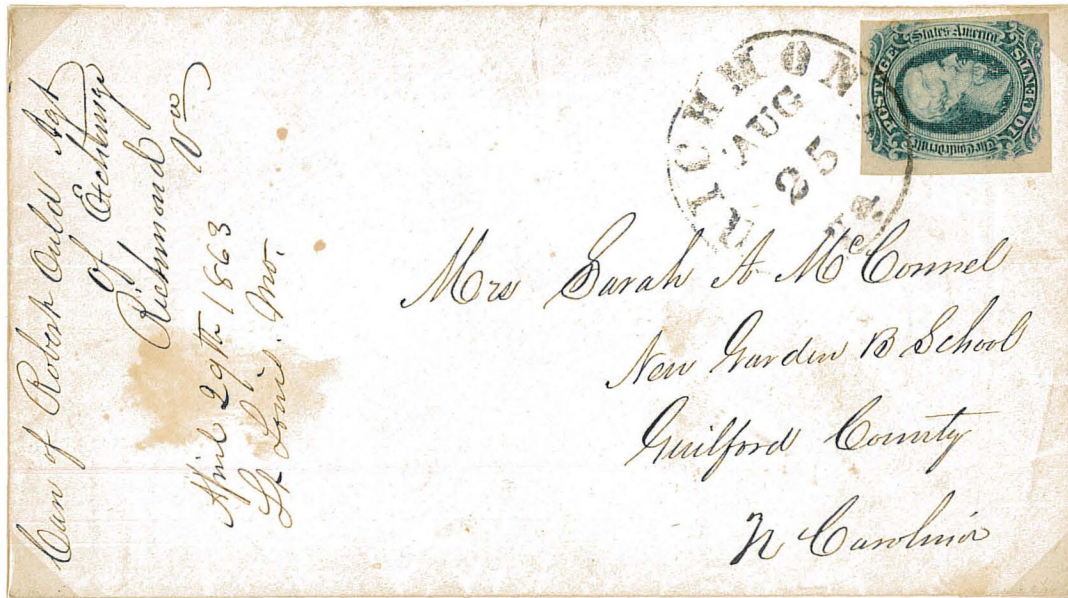 Care of Robert Ould Agt
of Exchange
Richmond
Va
April 29th 1863
St Louis. Mo.
RICHMOND
AUG
25
Va.
POSTAGE
States America
TEN CENTS
The Confederate
Mrs Sarah A McConnel
New Garden B School
Guilford County
N Carolina